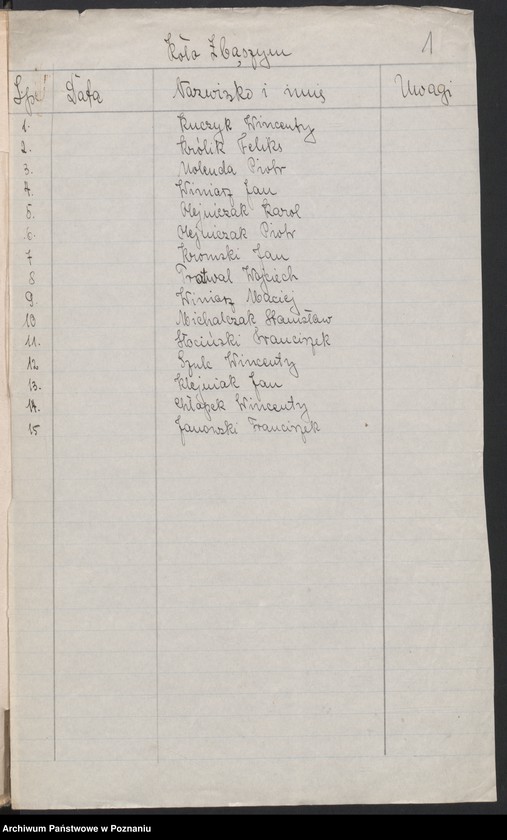 Koło Zbąszyn
1
Lp. Data Nazwisko i imię Uwagi
1. Kuczyk Wincenty
2. Królik Feliks
3. Molenda Piotr
4. Winiarz Jan
5. Olejniczak Karol
6. Olejniczak Piotr
7 Kromski Jan
8 Tratwal Wojciech
9. Winiarz Maciej
10 Michalczak Stanisław
11. Słociński Franciszek
12 Szulc Wincenty
13. Klejniak Jan
14. Chłapek Wincenty
15 Janowski Franciszek
Archiwum Państwowe w Poznaniu